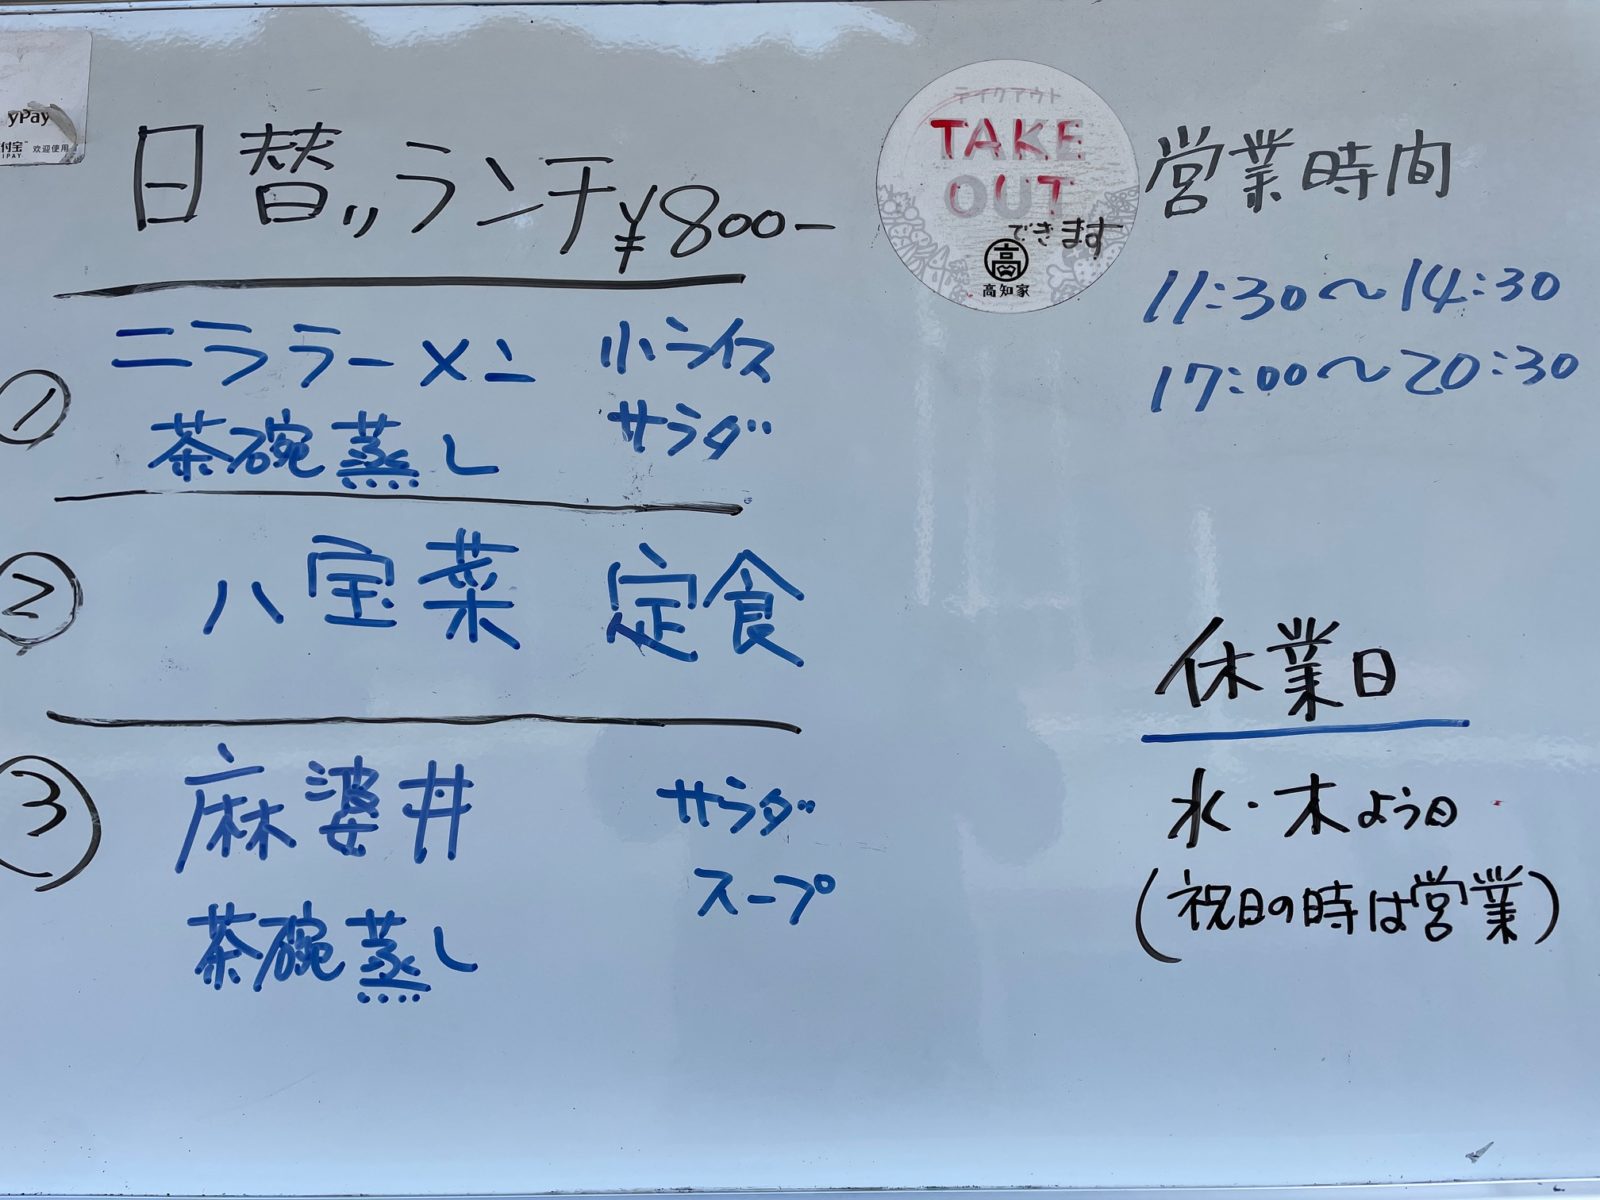 yPay
付宝™ 欢迎使用
IPAY
日替りランチ ¥800-
① ニララーメン 小ライス
茶碗蒸し サラダ
② 八宝菜 定食
③ 麻婆丼 サラダ
スープ
茶碗蒸し
テイクアウト
TAKE
OUT
できます
高
高知家
営業時間
11:30〜14:30
17:00〜20:30
休業日
水・木よう日
(祝日の時は営業)